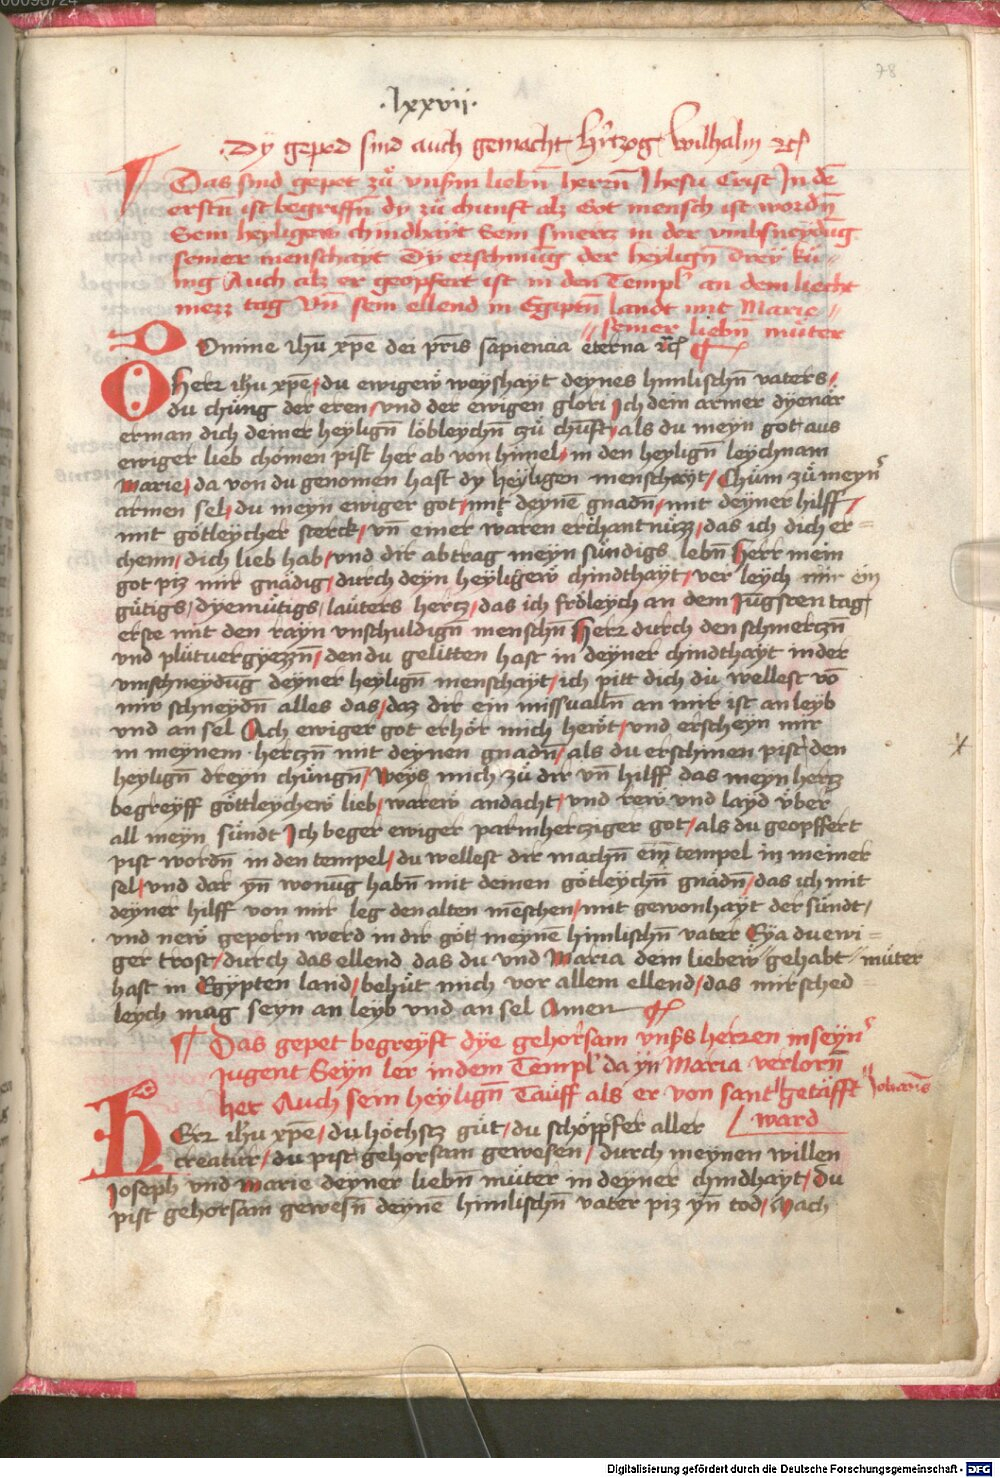 78
·lxxvii·
Dy geped sind auch gemacht hertzog Wilhalm etc
Das sind gepet zů vnserm liebn̄ herrn̄ Jhesu Crist Jn dē
erstn̄ ist begriffn̄ dy zů chunft alz Got mensch ist wordn̄
Sein heyligew chindhayt Sein smertz in der vmbsneydūg
seiner menschayt Dy erscheinūg der heylign̄ Drey kü-
nig Auch alz er geopfert ist in den Templ an dem liecht
mezz tag Vn̄ sein ellend in Egiptn̄ landt mit Marie //
// seiner liebn̄ můter
Domine ihū xpē dei pr̄is sapiencia eterna etc
O herr ihū xpē / du ewigew̄ weyshayt deynes himlischn̄ vaters /
du chüng der eren / vnd der ewigen glori Ich dein armer dyenär
erman dich deiner heylign̄ löbleychn̄ zů chůft / als du meyn got aus
ewiger lieb chömen pist her ab von himel / in den heylign̄ leychnam
Marie / da von du genomen hast dy heyligen menschayt / Chüm zů meyn̄
armen sel / du meyn ewiger got / mit deynē gnadn̄ / mit deyner hilff /
mit götleycher sterck / vn̄ einer waren erchantnüzz / das ich dich er =
chenn / dich lieb hab / vnd dir abtrag meyn sündigs lebn̄ Herr mein
got piz mir gnädig / durch deyn heyligew̄ chindthayt / ver leych mir ein
gütigs / dyemütigs / lauters hertz / das ich frŏleych an dem Jüngsten tag
erste mit den rayn vnschuldign̄ menschn̄ Herr durch den schmerczn̄
vnd plütuergyezzn̄ / den du gelitten hast in deyner chindthayt in der
vmschneydūg deyner heylign̄ menschayt / ich pitt dich du wellest vō
mir schneydn̄ alles das / daz dir ein missualln̄ an mir ist an leyb
vnd an sel Ach ewiger got erhör mich hewt / vnd erscheyn mir
in meynem herczn̄ mit deynen gnadn̄ / als du erschinen pist den
heylign̄ dreyn chüngn̄ / Weys mich zů dir vn̄ hilff das meyn hertz
begreyff göttleychew̄ lieb / warew̄ andacht / vnd rew̄ vnd layd v̈ber
all meyn sündt Ich beger ewiger parmhercziger got / als du geopffert
pist wordn̄ in den tempel / du wellest dir machn̄ ein tempel in meiner
sel / vnd dar yn̄ wonūg habn̄ mit deinen götleychn̄ gnadn̄ / das ich mit
deyner hilff von mir leg den alten mēschen / mit gewonhayt der sündt /
vnd new̄ geporn werd in dir göt meynē himlischn̄ vater Eya du ewi =
ger trost / durch das ellend das du vnd Maria dein liebew̄ // gehabt // můter
hast in Egypten land / behüt mich vor allem ellend / das mir sched =
leych mag seyn an leyb vnd an sel Amen
Das gepet begreyfft dye gehorsam vnsers herren in seyn̄
jugent Seyn ler in dem Templ da yn Maria verlorn̄
het Auch sein heylign̄ Tauff als er von sant // getäfft // Johannes
ward
Herr ihū xpē / du höchstz güt / du schöpffer aller
creatur / du pist gehorsam gewesen / durch meynen willen
Joseph vnd Marie deyner liebn̄ müter in deyner chindhayt / Du
pist gehorsam gewesn̄ deynē himlischn̄ vater piz yn̄ tod / Nach
Digitalisierung gefördert durch die Deutsche Forschungsgemeinschaft - DFG